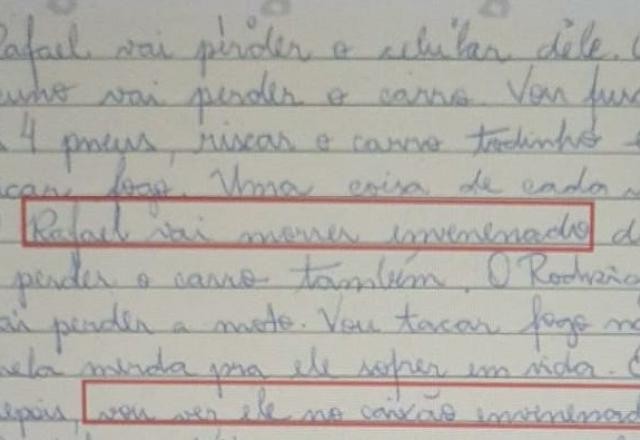 Rafael vai pirder o celular dêle.
vai perder o carro. Vou
4 pneus, riscar o carro todinho
fogo. Uma coisa de cada
Rafael vai morrer invenenado
perder o carro também. O
perder a moto. Vou tacar fogo
merda pra ele sofrer em vida.
vou ver ele no caixão